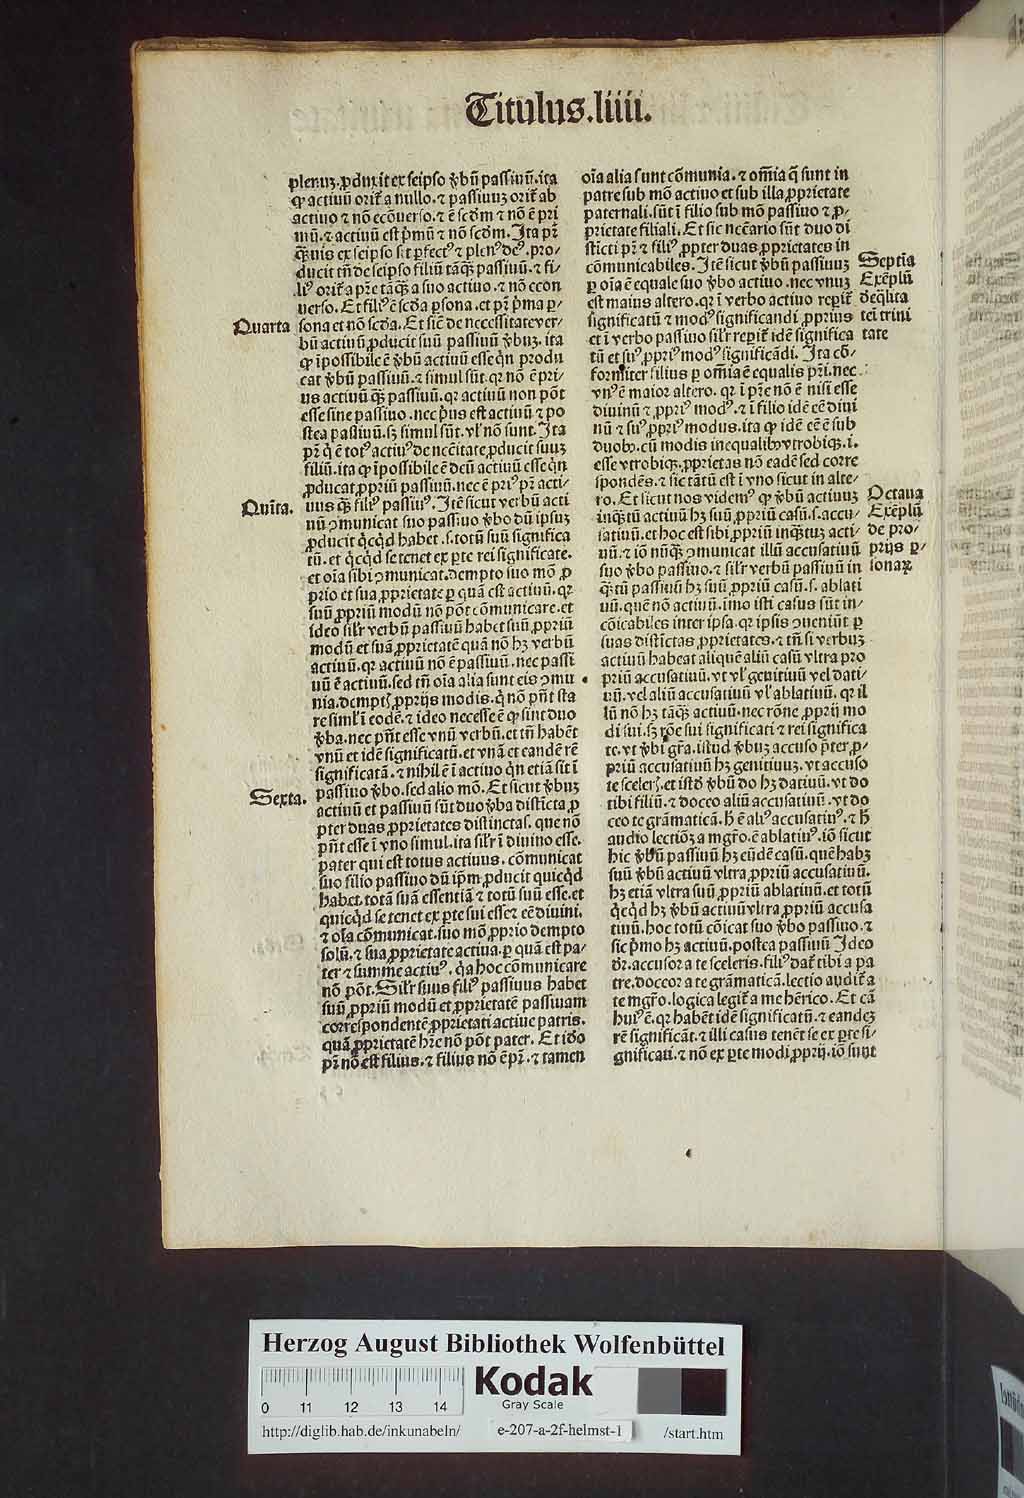 Titulus.liiii.
plenuz.ꝓduxit ex seipso ꝟbũ passiuũ.ita
ꝙ actiuũ orit̃ a nullo.⁊ passiuuz orit̃ ab
actiuo ⁊ nõ ecõuerso.⁊ ẽ scđm ⁊ nõ ẽ pri
mũ.⁊ actiuũ est p̃mũ ⁊ nõ scđm. Ita pr̃
q̃uis ex seipso sit ꝑfectꝰ ⁊ plenꝰ deꝰ.pro-
ducit tñ de seipso filiũ tãq̃ʒ passiuũ.⁊ fi-
liꝰ orit̃ a pr̃e tãq̃ʒ a suo actiuo.⁊ nõ econ
uerso. Et filiꝰ ẽ scđa ꝑsona.et pr̃ p̃ma ꝑ-
Quarta
sona et nõ scđa. Et sic̃ de necessitate ver-
bũ actiuũ ꝓducit suũ passiuũ ꝟbuz.ita
ꝙ ĩpossibile ẽ ꝟbũ actiuũ esse q̃n produ
cat ꝟbũ passiuũ.⁊ simul sũt.qr nõ ẽ pri-
us actiuũ q̃ʒ passiuũ.qr actiuũ non põt
esse sine passiuo.nec p̃us est actiuũ ⁊ po
stea passiuũ.sʒ simul sũt.vl̃ nõ sunt. Ita
pr̃ q̃ ẽ totꝰ actiuꝰ de nec̃itate ꝓducit suuz
filiũ.ita ꝙ ĩpossibile ẽ deũ actiuũ esse q̃n
ꝓducat ꝓpriũ passiuũ.nec ẽ priꝰ pr̃ acti-
uus q̃ʒ filiꝰ passiuꝰ. Itẽ sicut verbũ acti
Quĩta.
uũ ɔmunicat suo passiuo ꝟbo dũ ipsuz
ꝓducit q̃cq̃d habet.s.totũ suũ significa
tũ.et q̃cq̃d se tenet ex ꝑte rei significate.
et oĩa sibi ɔmunicat.dempto suo mõ ꝓ
prio et sua ꝓprietate ꝑ quã est actiuũ.qr
suũ ꝓpriũ modũ nõ põt cõmunicare.et
ideo sil̃r verbũ passiuũ habet suũ ꝓpriũ
modũ et suã ꝓprietatẽ quã nõ hʒ verbũ
actiuũ.qr actiuũ nõ ẽ passiuũ.nec passi
uũ ẽ actiuũ.sed tñ oĩa alia sunt eis ɔmu
nia.demptꝭ ꝓprijs modis.q̃ nõ pñt sta
re siml̃ ĩ eodẽ.⁊ ideo necesse ẽ ꝙ sint duo
ꝟba.nec pñt esse vnũ verbũ.et tñ habẽt
vnũ et idẽ significatũ.et vnã et eandẽ rẽ
significatã.⁊ nihil ẽ ĩ actiuo q̃n etiã sit ĩ
passiuo ꝟbo.sed alio mõ. Et sicut ꝟbuz
Sexta.
actiuũ et passiuũ sũt duo ꝟba distĩcta ꝓ
pter duas ꝓprietates distinctas.que nõ
pñt esse ĩ vno simul.ita sil̃r ĩ diuino esse.
pater qui est totus actiuus.cõmunicat
suo filio passiuo dũ ip̃m ꝓducit quicq̃d
habet.totã suã essentiã ⁊ totũ suũ esse.et
quicq̃d se tenet ex ꝑte sui esse ⁊ eẽ diuini.
⁊ oĩa cõmunicat.suo mõ ꝓprio dempto
solũ.⁊ sua ꝓprietate actiua.ꝑ quã est pa-
ter ⁊ summe actiuꝰ.q̃a hoc cõmunicare
nõ põt. Sil̃r suus filiꝰ passiuus habet
suũ ꝓpriũ modũ et ꝓprietatẽ passiuam
correspondentẽ ꝓprietati actiue patris.
quã ꝓprietatẽ hr̃e nõ põt pater. Et iõo
pr̃ nõ est filius.⁊ filius nõ ẽ pr̃.⁊ tamen
oĩa alia sunt cõmunia.⁊ om̃ia q̃ sunt in
patre sub mõ actiuo et sub illa ꝓprietate
paternali.sũt ĩ filio sub mõ passiuo ⁊ ꝓ-
prietate filiali. Et sic nec̃ario sũt duo di
stĩcti pr̃ ⁊ filiꝰ ꝓpter duas ꝓprietates in
cõmunicabiles. Itẽ sicut ꝟbũ passiuuz
ꝑ oĩa ẽ equale suo ꝟbo actiuo.nec vnuz
est maius altero.qr ĩ verbo actiuo reperit̃
significatũ ⁊ modꝰ significandi ꝓprius
et ĩ verbo passiuo sil̃r reperit̃ idẽ significa
tũ et suꝰ ꝓpriꝰ modꝰ significãdi. Ita cõ-
formiter filius ꝑ om̃ia ẽ equalis pr̃i.nec
vnꝰ ẽ maior altero.qr ĩ pr̃e nõ ẽ nisi esse
diuinũ ⁊ ꝓpriꝰ modꝰ.⁊ ĩ filio idẽ eẽ diui
nũ ⁊ suꝰ ꝓpriꝰ modus.ita ꝙ idẽ eẽ ẽ sub
duobꝫ.cũ modis inequalibꝫ vtrobiqꝫ.i.
esse vtrobiqꝫ.ꝓprietas nõ eadẽ sed corre
spondẽs.⁊ sic tãtũ est ĩ vno sicut in alte-
ro. Et sicut nos videmꝰ ꝙ ꝟbũ actiuuz
inq̃ʒtũ actiuũ hʒ suũ ꝓpriũ casũ.s.accu-
satiuũ.et hoc est sibi ꝓpriũ inq̃ʒtuz acti-
uũ.⁊ iõ nũq̃ʒ ɔmunicat illũ accusatiuũ
suo ꝟbo passiuo.⁊ sil̃r verbũ passiuũ in
q̃ʒtũ passiuũ hʒ suũ ꝓpriũ casũ.s.ablati
uũ.quẽ nõ actiuũ.imo isti casus sũt in-
cõicabiles inter ipsa.qr ipsis ɔueniũt ꝑ
suas distĩctas ꝓprietates.⁊ tñ si verbuz
actiuũ habeat aliquẽ aliũ casũ vltra pro
priũ accusatiuũ.vt vl̃ genitiuũ vel dati-
uũ.vel aliũ accusatiuũ vl̃ ablatiuũ.qr il
lũ nõ hʒ tãq̃ʒ actiuũ.nec rõne ꝓprij mo
di sui.sʒ rõe sui significati ⁊ rei significa
te.vt ꝟbi gr̃a.istud ꝟbuz accuso p̃ter ꝓ-
priũ accusatiuũ hʒ genitiuuz.vt accuso
te scelerꝭ.et istđ ꝟbũ do hʒ datiuũ.vt do
tibi filiũ.⁊ doceo aliũ accusatiuũ.vt do
ceo te grãmaticã.h̃ ẽ aliꝰ accusatiuꝰ.⁊ h̃
audio lectiõʒ a mgr̃o.ẽ ablatiuꝰ.iõ sicut
hic ꝟbũ passiuũ hʒ eũdẽ casũ.quẽ habʒ
suũ ꝟbũ actiuũ vltra ꝓpriũ accusatiuũ.
hʒ etiã vltra suũ ꝓpriũ ablatiuũ.et totũ
q̃cq̃d hʒ ꝟbũ actiuũ vltra ꝓpriũ accusa
tiuũ.hoc totũ cõicat suo ꝟbo passiuo.⁊
sic p̃mo hʒ actiuũ.postea passiuũ Ideo
dr̃.accusor a te sceleris.filiꝰ dat̃ tibi a pa
tre.doceor a te grãmaticã.lectio audit̃ a
te mgr̃o.logica legit̃ a me hẽrico. Et cã
huiꝰ ẽ.qr habẽt idẽ significatũ.⁊ eandeʒ
rẽ significãt.⁊ illi casus tenẽt se ex ꝑte si-
gnificati.⁊ nõ ex ꝑte modi ꝓprij.iõ sunt
Septĩa
Exẽplũ
đeq̃lita
tei trini
tate
Octaua
Exẽplũ
de pro-
prijs ꝑ-
sonaꝝ
Herzog August Bibliothek Wolfenbüttel
0 11 12 13 14
Kodak
Gray Scale
http://diglib.hab.de/inkunabeln/ e-207-a-2f-helmst-1 /start.htm